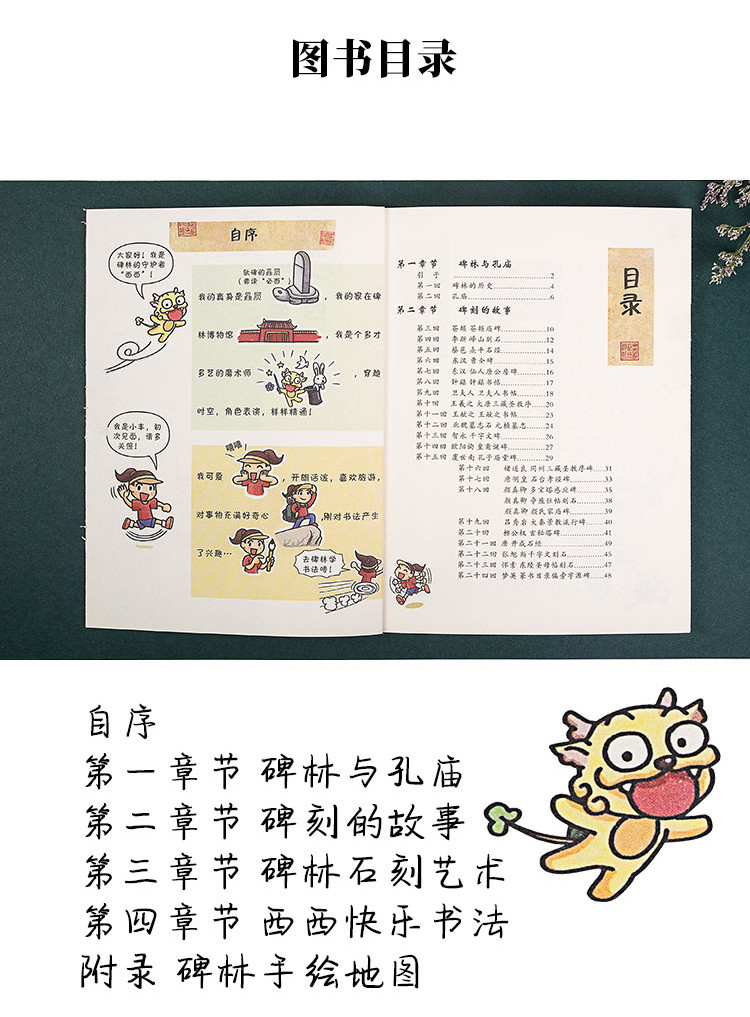 图书目录
自序
大家好！我是
碑林的守护者
“西西”！
驮碑的赑屃
（音读“必西”）
我的真身是赑屃，我的家在碑
林博物馆，我是个多才
多艺的魔术师，穿越
时空，角色表演，样样精通！
我是小丰，初
次见面，请多
关照！
嘻嘻
我可爱，开朗活泼，喜欢旅游，
对事物充满好奇心，刚对书法产生
了兴趣…
去碑林学
书法喽！
目录
第一章节 碑林与孔庙
引 子 ……2
第一回 碑林的历史……4
第二回 孔庙……6
第二章节 碑刻的故事
第三回 苍颉 苍颉庙碑……10
第四回 李斯 峄山刻石……12
第五回 蔡邕 熹平石经……14
第六回 东汉 曹全碑……15
第七回 东汉 仙人唐公房碑……16
第八回 钟繇 钟繇书帖……17
第九回 卫夫人 卫夫人书帖……18
第十回 王羲之 大唐三藏圣教序……20
第十一回 王献之 王献之书帖……23
第十二回 北魏墓志石 元桢墓志……24
第十三回 智永 千字文碑……26
第十四回 欧阳询 皇甫诞碑……27
第十五回 虞世南 孔子庙堂碑……29
第十六回 褚遂良 同州三藏圣教序碑……31
第十七回 唐明皇 石台孝经碑……33
第十八回 颜真卿 多宝塔感应碑……35
颜真卿 争座位帖刻石……38
颜真卿 颜氏家庙碑……39
第十九回 吕秀岩 大秦景教流行碑……40
第二十回 柳公权 玄秘塔碑……41
第二十一回 唐 开成石经……49
第二十二回 张旭 断千字文刻石……45
第二十三回 怀素 东陵圣母帖刻石……47
第二十四回 梦英 篆书目录偏旁字源碑……48
自序
第一章节 碑林与孔庙
第二章节 碑刻的故事
第三章节 碑林石刻艺术
第四章节 西西快乐书法
附录 碑林手绘地图